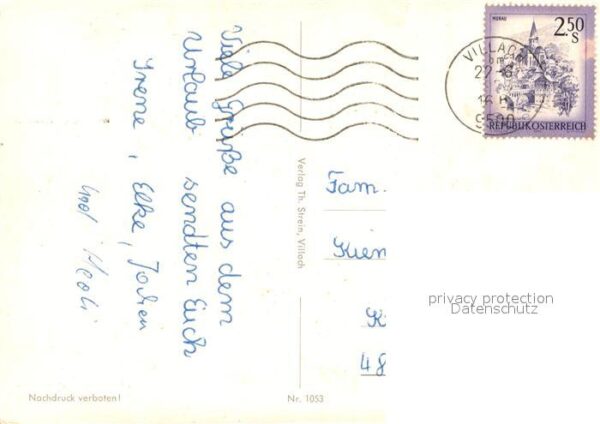 Viele Grüße aus dem
Urlaub sendten Euch
Irene, Elke, Jochen
und
Verlag Th. Strein, Villach
Nachdruck verboten!
Nr. 1053
MURAU
2.50
S
REPUBLIK ÖSTERREICH
VILLACH
22.-8.
16 H
9500
Fam.
Kien
K
48
privacy protection
Datenschutz